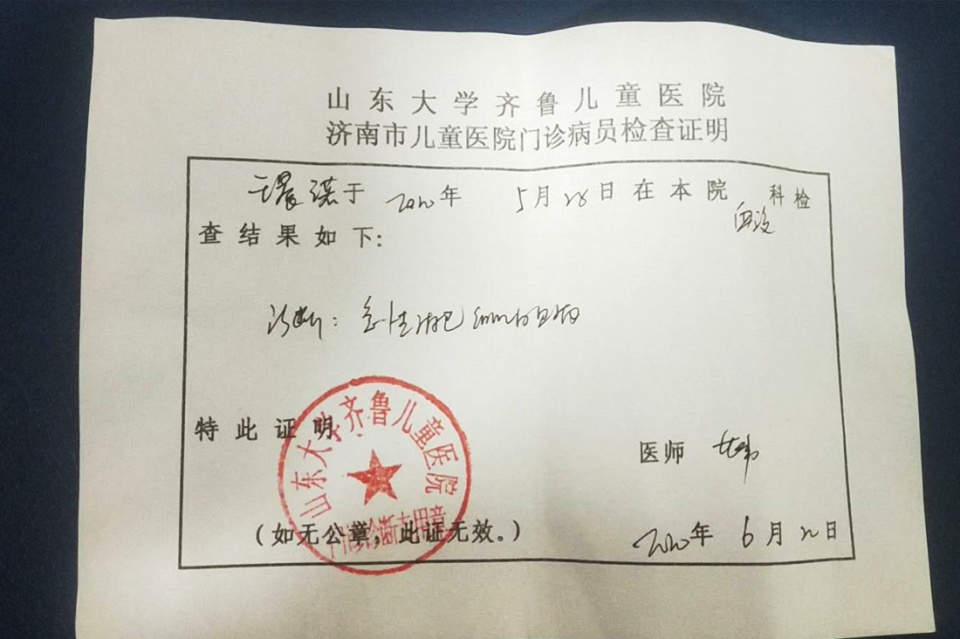 山东大学齐鲁儿童医院
济南市儿童医院门诊病员检查证明
于 2020年 5月28日在本院 科检
查结果如下:
诊断: 急性淋巴细胞白血病
特此证明
山东大学齐鲁儿童医院
门诊诊断专用章
医师
(如无公章,此证无效。)
2020年 6月22日